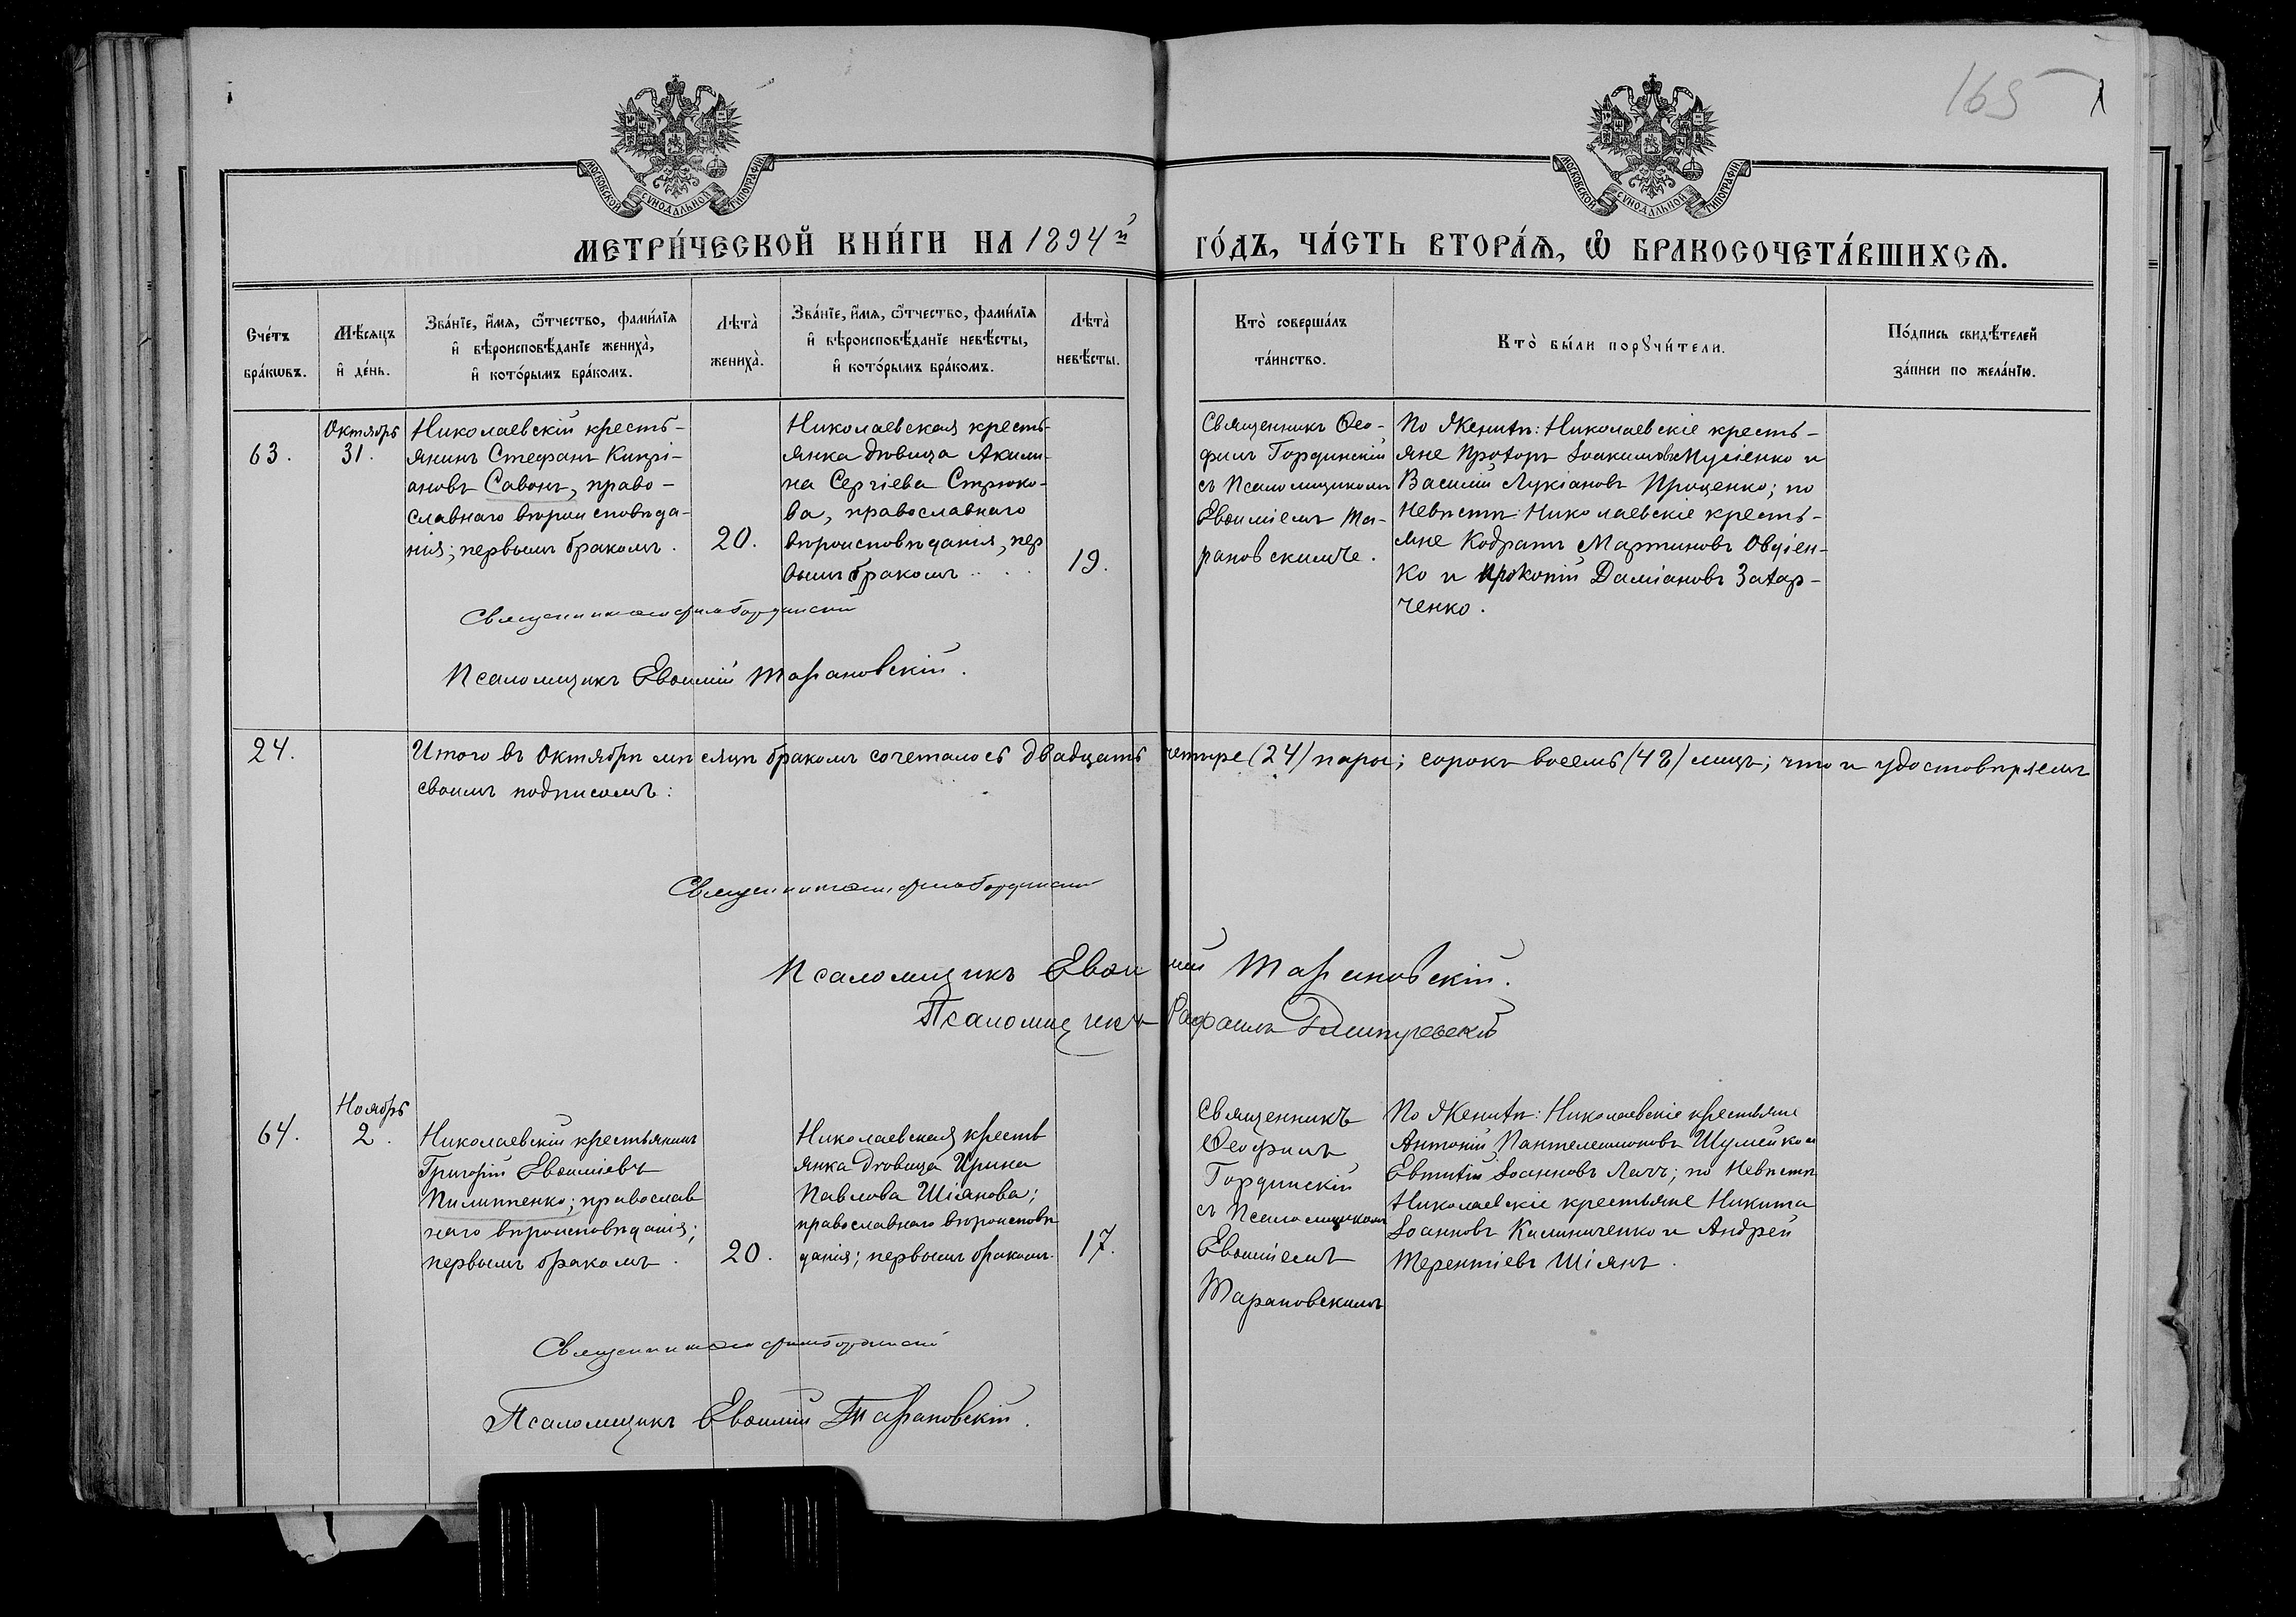 165
МОСКОВСКОЙ СУНОДАЛЬНОЙ ТИПОГРАФІИ
МОСКОВСКОЙ СУНОДАЛЬНОЙ ТИПОГРАФІИ
МЕТРИ́ЧЕСКОЙ КНИ́ГИ НА 1894й ГО́ДЪ, ЧА́СТЬ ВТОРА́Ѧ, Ѿ БРАКОСОЧЕТА́ВШИХСѦ.
Сче́тъ
бра́кѡвъ.
Мѣ́сѧцъ
и҆ де́нь.
Зва́нїе, и҆́мѧ, ѻ҆́тчество, фами́лїѧ
и҆ вѣроисповѣ́данїе жениха̀,
и҆ кото́рымъ бра́комъ.
Лѣта̀
жениха̀.
Зва́нїе, и҆́мѧ, ѻ҆́тчество, фами́лїѧ
и҆ вѣроисповѣ́данїе невѣ́сты,
и҆ кото́рымъ бра́комъ.
Лѣта̀
невѣ́сты.
Кто̀ соверша́лъ
та́инство.
Кто̀ бы́ли порꙋчи́тели.
По́дпись свидѣ́телей
за́писи по жела́нїю.
63.
Октябрь
31.
Николаевскій кресть-
янинъ Стефанъ Кипрі-
ановъ Савонъ, право-
славнаго вѣроисповѣда-
нія; первымъ бракомъ.
20.
Николаевская кресть-
янка дѣвица Акили-
на Сергіева Стрюко-
ва, православнаго
вѣроисповѣданія, пер
вымъ бракомъ
19.
Священникъ Ѳео-
филъ Гординскій
съ Псаломщикомъ
Евѳиміемъ Та-
рановскимъ.
По Женихѣ: Николаевскіе кресть-
яне Прохоръ Іоакимовъ Мусіенко и
Василій Лукіановъ Проценко; по
Невѣстѣ: Николаевскіе кресть-
яне Кодратъ Мартиновъ Овдіен-
ко и Прокопій Даміановъ Захар-
ченко.
Священникъ Ѳеофилъ Гординскій
Псаломщикъ Евѳимій Тарановскій.
24.
Итого въ Октябрѣ мѣсяцѣ бракомъ сочеталось двадцать четыре (24) пары; сорокъ восемь (48) лицъ; что и удостовѣряемъ
своимъ подписомъ:
Священникъ Ѳеофилъ Гординскій
Псаломщикъ Евѳимій Тарановскій.
Псаломщикъ Рафаилъ
64.
Ноябрь
2.
Николаевскій крестьянинъ
Григорій Евѳиміевъ
Пилипенко; православ
наго вѣроисповѣданія;
первымъ бракомъ.
20.
Николаевская кресть
янка дѣвица Ирина
Павлова Шіянова;
православнаго вѣроисповѣ
данія; первымъ бракомъ.
17.
Священникъ
Ѳеофилъ
Гординскій
съ Псаломщикомъ
Евѳиміемъ
Тарановскимъ
По Женихѣ: Николаевскіе крестьяне
Антоній Пантелеимоновъ Шумейко и
Евтихій Іоанновъ Лахъ; по Невѣстѣ
Николаевскіе крестьяне Никита
Іоанновъ Калиниченко и Андрей
Терентіевъ Шіянъ.
Священникъ Ѳеофилъ Гординскій
Псаломщикъ Евѳимій Тарановскій.